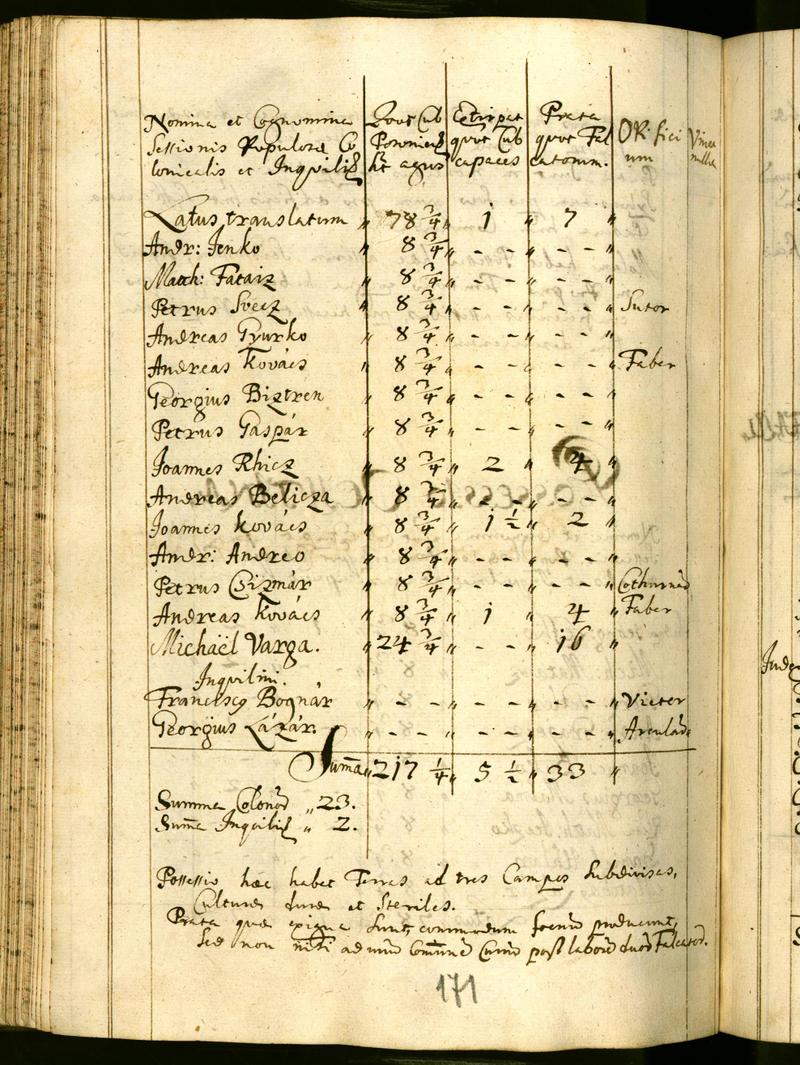 Nomina et Cognomina
Sessionis Populorū Co
lonicalis et Inqvilin
Qvot Cub
Posonien
agros
Extirpat
qvot Cub
capaces
Prata
qvot Fal
catorum.
Oppifici
um
Latus translatum " 78 3/4 " 1 " 7 "
Andr: Jenko " 8 3/4 " - - " - - "
Math: Fataiz " 8 3/4 " - - " - - "
Petrus Svecz " 8 3/4 " - - " - - " Sutor
Andreas Gyurko " 8 3/4 " - - " - - "
Andreas Kovács " 8 3/4 " - - " - - " Faber
Georgius Biztren " 8 3/4 " - - " - - "
Petrus Gaspár " 8 3/4 " - - " - - "
Joannes Rhicz " 8 3/4 " 2 " 4 "
Andreas Belicza " 8 3/4 " - - " - - "
Joannes Kovács " 8 3/4 " 1 1/2 " 2 "
Andr: Andreo " 8 3/4 " - - " - - "
Petrus Csizmár " 8 3/4 " - - " - - "
Andreas Kovács " 8 3/4 " 1 " 4 " Faber
Michaël Varga. " 24 3/4 " - - " 16 "
Inqvilini.
Francisc9 Bognár " - - " - - " - - " Vietor
Georgius Lázár. " - - " - - " - - "
Sum̄a " 217 1/4 " 5 1/2 " 33 "
Summa Colonor " 23.
Sum̄a Inqvilin " 2.
Possessio hæc habet Terras ad tres Campos subdivisas,
Culturæ duræ et Steriles.
Prata quæ exigua sunt, commodum foenū producunt,
Sed non nisi ad unū com̄une post laborē Falcator.
171